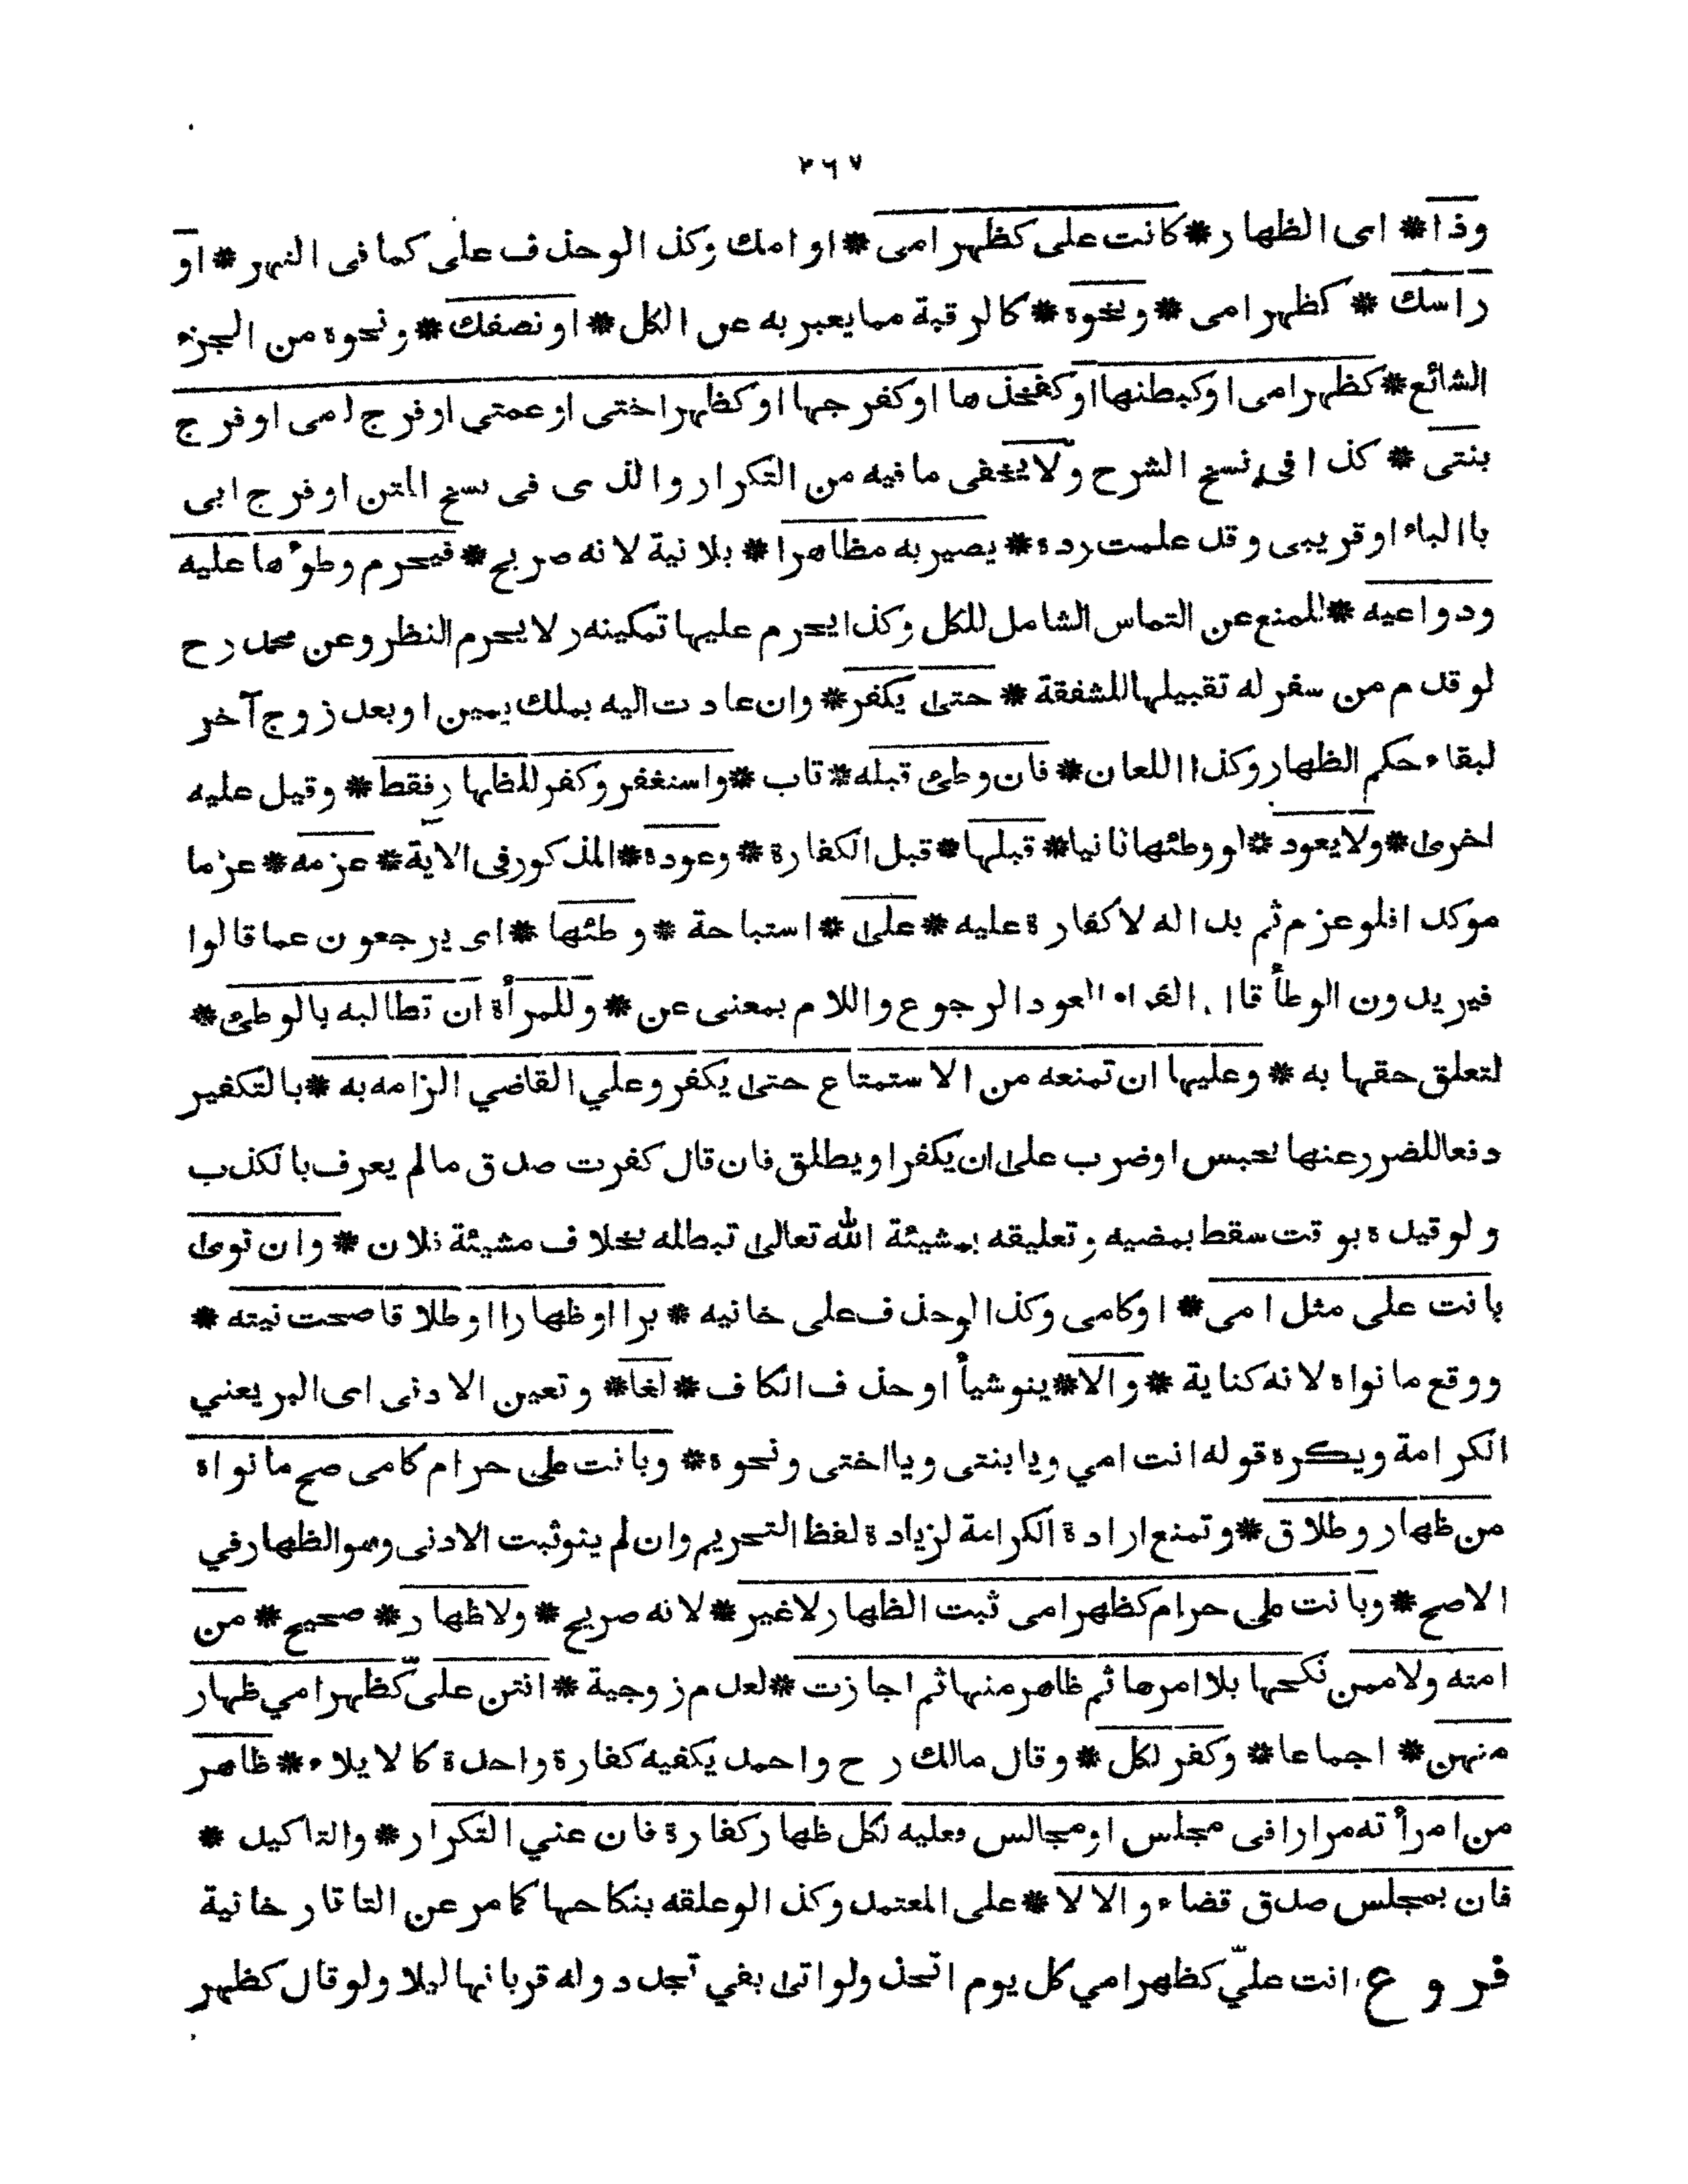 ٢٦٧
وذا * اى الظهار * كانت على كظهر امى * او امك وكذا لوحذف على كما فى النهر * او
راسك * كظهر امى * ونحوه * كالرقبة مما يعبر به عن الكل * او نصفك * ونحوه من الجزء
الشائع * كظهر امى او كبطنها او كفخذها او كفرجها او كظهر اختى او عمتي او فرج امى او فرج
بنتى * كذا فى نسخ الشرح ولا يخفى ما فيه من التكرار والذى فى نسخ المتن او فرج ابى
باالباء او قريبى وقد علمت رده * يصير به مظاهرا * بلا نية لانه صريح * فيحرم وطوٴها عليه
ودواعيه * للمنع عن التماس الشامل للكل وكذا يحرم عليها تمكينه ر لا يحرم النظر وعن محمد رح
لو قدم من سفر له تقبيلها للشفقة * حتى يكفر * وان عادت اليه بملك يمين او بعد زوج آخر
لبقاء حكم الظهار وكذا اللعان * فان وطئ قبله * تاب * واستغفر وكفر للظهار فقط * وقيل عليه
اخرى * ولا يعود * لو وطئها ثانيا * قبلها * قبل الكفارة * وعوده * المذكور فى الاية * عزمه * عزما
موكدا فلو عزم ثم بدا له لا كفارة عليه * على * استباحة * وطئها * اى يرجعون عما قالوا
فيريدون الوطأ قال الفراء العود الرجوع واللام بمعنى عن * وللمرأة ان تطالبه بالوطئ *
لتعلق حقها به * وعليها ان تمنعه من الاستمتاع حتى يكفر وعلي القاضي الزامه به * بالتكفير
دفعا للضرر عنها بحبس او ضرب على ان يكفر او يطلق فان قال كفرت صدق مالم يعرف بالكذب
ولو قيده بوقت سقط بمضيه وتعليقه بمشيئة الله تعالى تبطله بخلاف مشيئة فلان * وان نوى
بانت على مثل امى * او كامى وكذا لوحذف على خانيه * برا او ظهارا او طلاقا صحت نيته *
ووقع ما نواه لانه كناية * والا * ينو شيأ او حذف الكاف * لغا * وتعين الادنى اى البر يعني
الكرامة ويكره قوله انت امي ويا بنتى ويا اختى ونحوه * وبانت على حرام كامى صح ما نواه
من ظهار وطلاق * وتمنع ارادة الكرامة لزيادة لفظ التحريم وان لم ينو ثبت الادنى وهو الظهار في
الاصح * وبانت على حرام كظهر امى ثبت الظهار لا غير * لانه صريح * ولا ظهار * صحيح * من
امته ولا ممن نكحها بلا امرها ثم ظاهر منها ثم اجازت * لعدم زوجية * انتن علىّ كظهر امي ظهار
منهن * اجماعا * وكفر لكل * وقال مالك رح واحمد يكفيه كفارة واحدة كالايلاء * ظاهر
من امرأته مرارا فى مجلس او مجالس فعليه لكل ظهار كفارة فان عني التكرار * والتاكيد *
فان بمجلس صدق قضاء والا لا * على المعتمد وكذا لو علقه بنكاحها كما مر عن التاتارخانية
فروع انت عليّ كظهر امي كل يوم اتحد ولو اتى بفي تجدد وله قربانها ليلا ولو قال كظهر